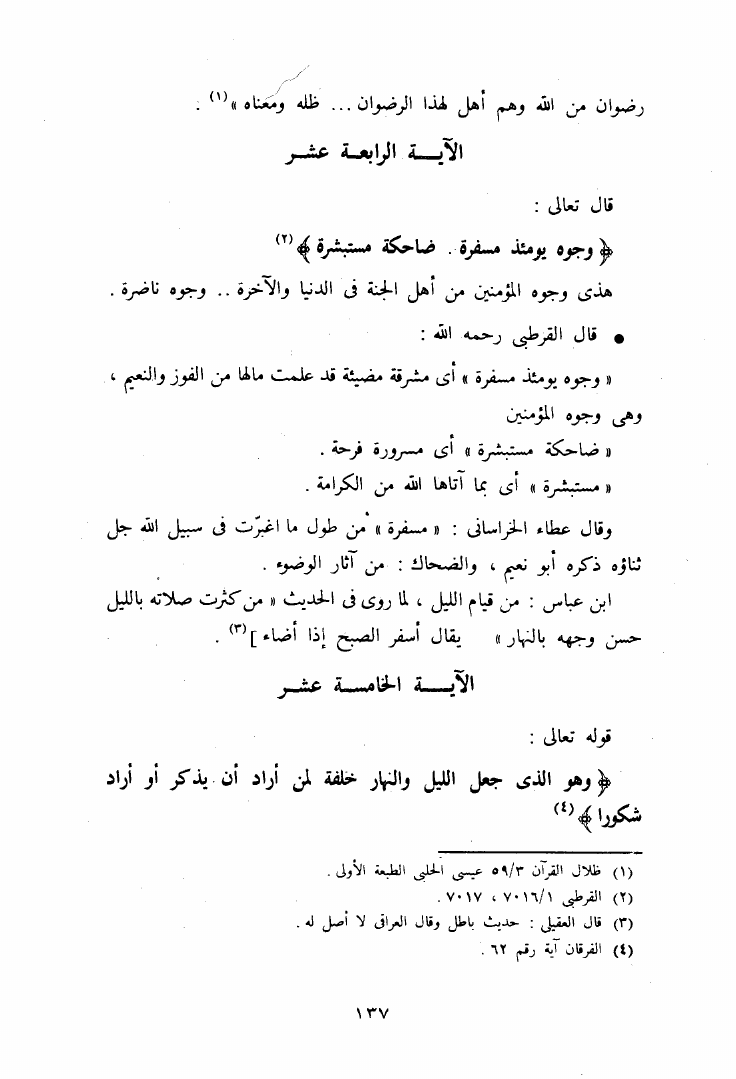 رضوان من الله وهم أهل لهذا الرضوان ... ظله ومعناه »(١) .
الآيـــة الرابعـة عشـــر
قال تعالى :
﴿ وجوه يومئذ مسفرة . ضاحكة مستبشرة ﴾(٢)
هذى وجوه المؤمنين من أهل الجنة فى الدنيا والآخرة .. وجوه ناضرة .
● قال القرطبى رحمه الله :
« وجوه يومئذ مسفرة » أى مشرقة مضيئة قد علمت مالها من الفوز والنعيم ،
وهى وجوه المؤمنين
« ضاحكة مستبشرة » أى مسرورة فرحة .
« مستبشرة » أى بما آتاها الله من الكرامة .
وقال عطاء الخراسانى : « مسفرة » من طول ما اغبرّت فى سبيل الله جل
ثناؤه ذكره أبو نعيم ، والضحاك : من آثار الوضوء .
ابن عباس : من قيام الليل ، لما روى فى الحديث « من كثرت صلاته بالليل
حسن وجهه بالنهار » يقال أسفر الصبح إذا أضاء ](٣) .
الآيـــة الخامســة عشـــر
قوله تعالى :
﴿ وهو الذى جعل الليل والنهار خلفة لمن أراد أن يذكر أو أراد
شكورا ﴾(٤)
(١) ظلال القرآن ٥٩/٣ عيسى الحلبى الطبعة الأولى .
(٢) القرطبى ٧٠١٦/١ ، ٧٠١٧ .
(٣) قال العقيلى : حديث باطل وقال العراقى لا أصل له .
(٤) الفرقان آية رقم ٦٢ .
١٣٧